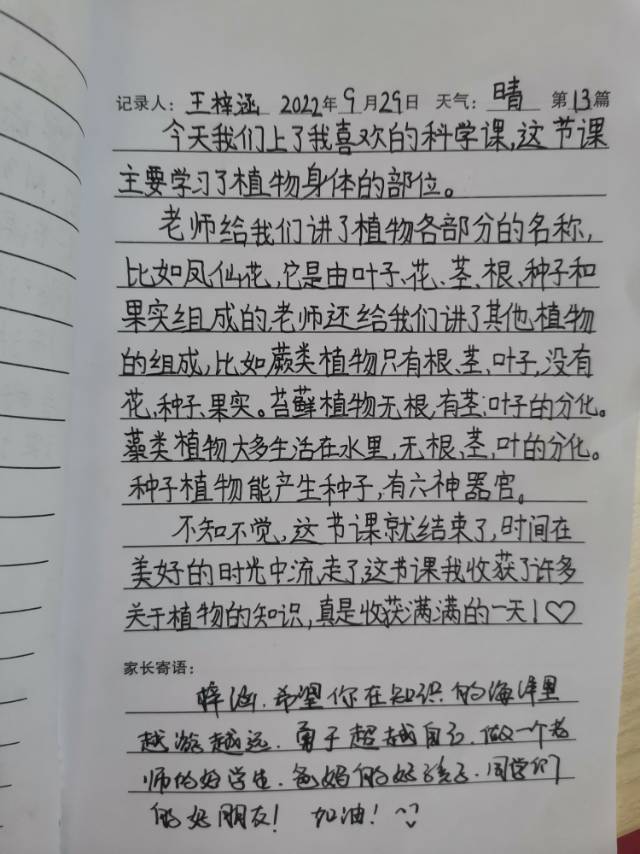 记录人：王梓涵 2022年9月29日 天气：晴 第13篇
今天我们上了我喜欢的科学课,这节课
主要学习了植物身体的部位。
老师给我们讲了植物各部分的名称,
比如凤仙花,它是由叶子、花、茎、根、种子和
果实组成的,老师还给我们讲了其他植物
的组成,比如蕨类植物只有根、茎、叶子,没有
花,种子、果实。苔藓植物无根,有茎、叶子的分化。
藻类植物大多生活在水里,无根、茎,叶的分化。
种子植物能产生种子,有六神器官。
不知不觉,这节课就结束了,时间在
美好的时光中流走了,这节课我收获了许多
关于植物的知识,真是收获满满的一天!♡
家长寄语：
梓涵.希望你在知识的海洋里
越游越远.勇于超越自己.做一个老
师的好学生.爸妈的好孩子.同学们
的好朋友! 加油!